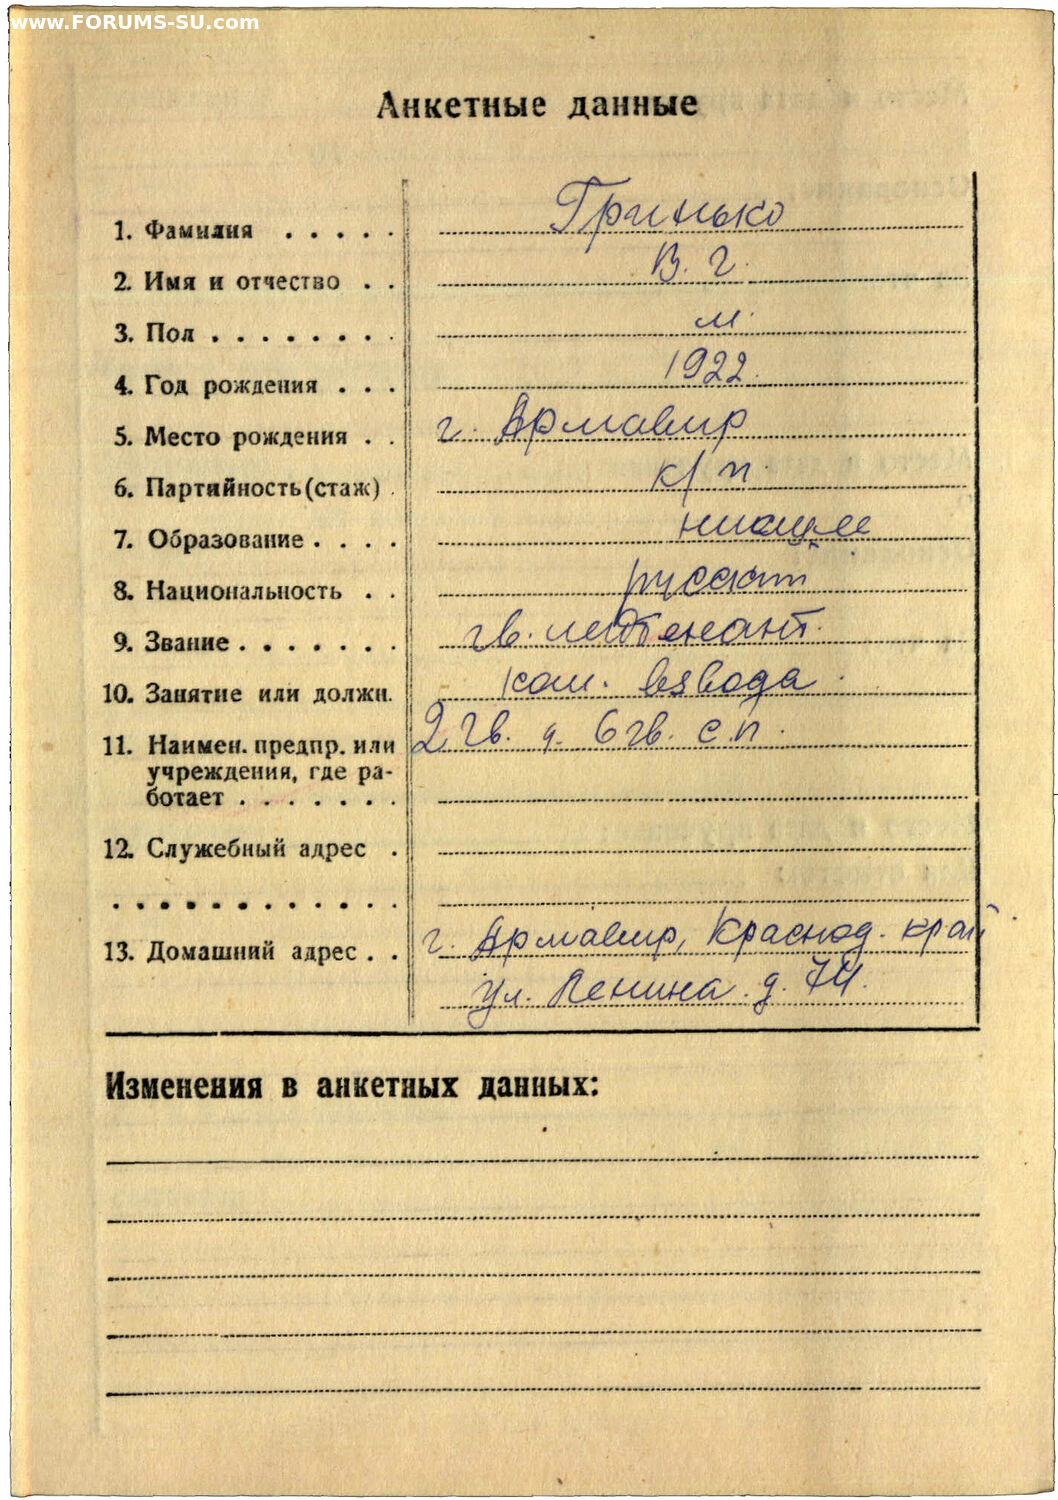 www.FORUMS-SU.com
Анкетные данные
1. Фамилия . . . . . Гринько
2. Имя и отчество . . В. Г.
3. Пол . . . . . . . . м.
4. Год рождения . . . 1922.
5. Место рождения . . г. Армавир
6. Партийность (стаж) . к/п.
7. Образование . . . . низшее
8. Национальность . .
9. Звание . . . . . . . гв. лейтенант.
10. Занятие или должн. ком. взвода.
11. Наимен. предпр. или 2 гв. д. 6 гв. с.п.
учреждения, где ра-
ботает . . . . . . .
12. Служебный адрес .
. . . . . . . . . . . .
13. Домашний адрес . . г. Армавир, Краснод. край
ул. Ленина. д. 74.
Изменения в анкетных данных: